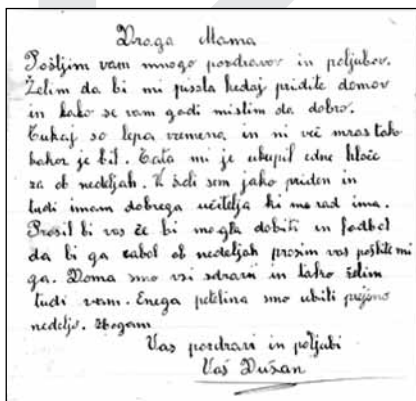 Draga Mama
Pošljim vam mnogo pozdravov in poljubov.
Želim da bi mi pissla kedaj pridite domov
in kako se vam godi mislim da dobro.
Tukaj so lepa vremena in ni več mras tako
kakor je bil. Tata mi je ukupil edne hlače
za ob nedeljah. V šoli sem jako priden in
tudi imam dobrega učitelja ki me rad ima.
Prosil bi vas če bi mogla dobiti en fodbol
da bi ga cabol ob nedeljah prosim vas poštite mi
ga. Doma smo vsi zdravi in tako želim
tudi vam. Enega petelina smo ubili prejšno
nedeljo. Zbogam
Vas pozdravi in poljubi
Vaš Dušan